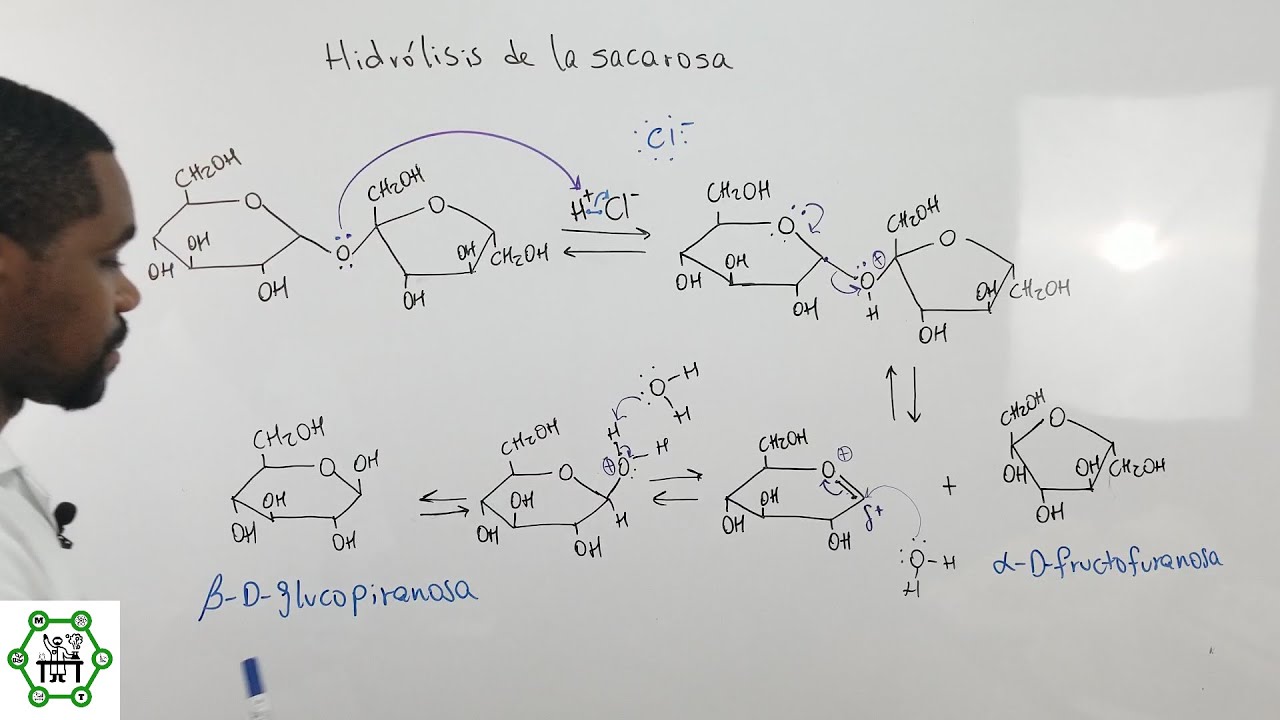 Hidrólisis de la sacarosa
:Cl:⁻
CH₂OH O OH OH OH :O: CH₂OH O OH OH CH₂OH
H⁺ Cl⁻
CH₂OH O OH OH OH O⊕ H CH₂OH O OH OH CH₂OH
CH₂OH O OH OH OH OH
CH₂OH O OH OH OH H ⊕O H H
O H H
CH₂OH O⊕ OH OH OH δ⁺
:O-H
H
+
CH₂OH O OH OH OH CH₂OH
β-D-glucopiranosa
α-D-fructofuranosa
M
T